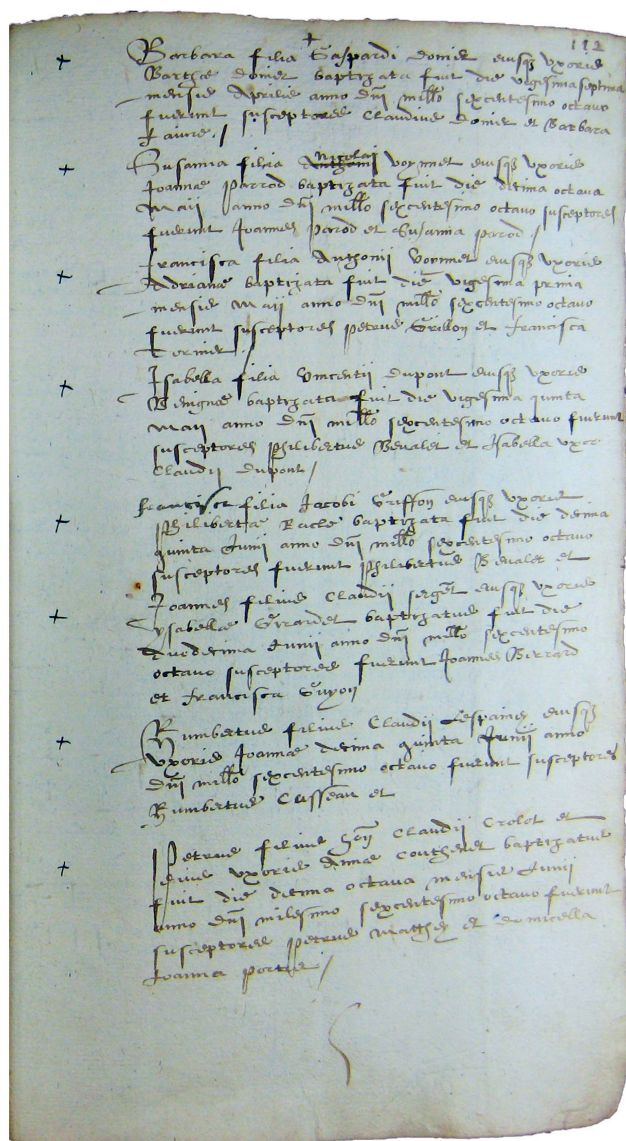 112
Barbara filia Gaspardi Domer eiusqz uxoris
Barthæ Domer baptizata fuit die vigesima septima
mensis Aprilis anno Dni millo sexcentesimo octavo
fuerunt susceptores Claudius Domer et Barbara
Faivre /
Susanna filia Nicolai Voyinet eiusqz uxoris
Joannæ Parrod baptizata fuit die decima octava
Maii anno Dni millo sexcentesimo octavo susceptores
fuerunt Joannes Parod et Susanna Parod /
Francisca filia Anthonii Voyinet eiusqz uxoris
Adrianæ baptizata fuit die vigesima prima
mensis Maii anno Dni millo sexcentesimo octavo
fuerunt susceptores Petrus Grillon et Francisca
Tornier /
Isabella filia Vincentii Dupont eiusqz uxoris
Benignæ baptizata fuit die vigesima quinta
Maii anno Dni millo sexcentesimo octavo fuerunt
susceptores Philibertus Bevalet et Isabella uxor
Claudii Dupont /
Francisca filia Jacobi Griffon eiusqz uxoris
Philibertæ Racle baptizata fuit die decima
quinta Junii anno Dni millo sexcentesimo octavo
susceptores fuerunt Philibertus Bevalet et
Joannes filius Claudii eiusqz uxoris
Ysabellæ Girardet baptizatus fuit die
duodecima Junii anno Dni millo sexcentesimo
octavo susceptores fuerunt Joannes Birrard
et Francisca Guyon
Humbertus filius Claudii Lespaine eiusqz
uxoris Joannæ decima quinta Junii anno
Dni millo sexcentesimo octavo fuerunt susceptores
Humbertus Cusseau et
Petrus filius hon Claudii Crolot et
eius uxoris Annæ Couthenet baptizatus
fuit die decima octava mensis Junii
anno Dni milesimo sexcentesimo octavo fuerunt
susceptores Petrus Matthey et Domicella
Joanna Portier /